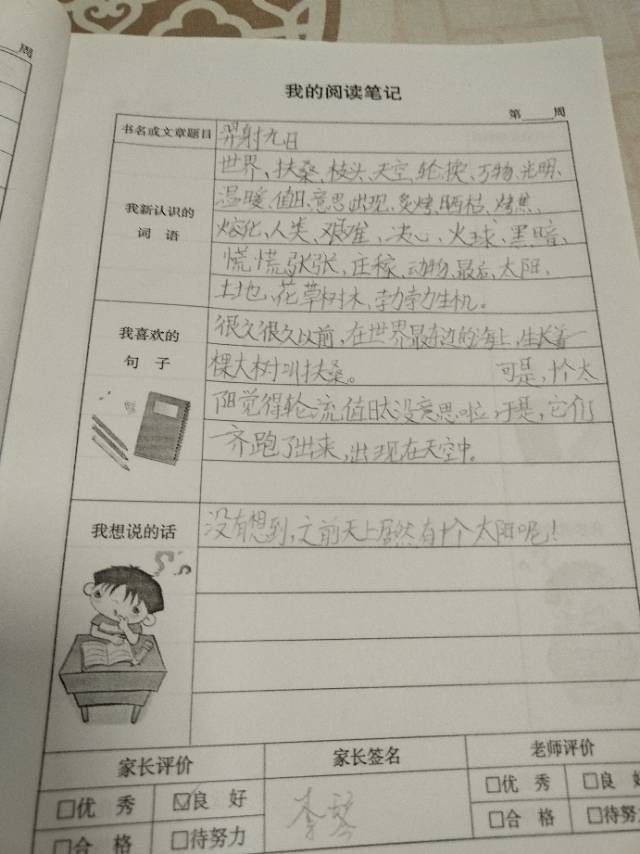 周
我的阅读笔记
第____周
书名或文章题目 羿射九日
我新认识的词语
世界、扶桑、枝头、天空、轮换、万物、光明、
温暖、值日、意思、出现、炙烤、晒枯、烤焦、
熔化、人类、艰难、决心、火球、黑暗、
慌慌张张、庄稼、动物、最后、太阳、
土地、花草树木、勃勃生机。
我喜欢的句子
很久很久以前,在世界最东边的海上,生长着一
棵大树叫扶桑。 可是,十个太
阳觉得轮流值日太没意思啦,于是,它们
一齐跑了出来,出现在天空中。
我想说的话
没有想到,之前天上居然有十个太阳呢!
家长评价 家长签名 老师评价
□优 秀 ☑良 好 □优 秀 □良 好
□合 格 □待努力 □合 格 □待努